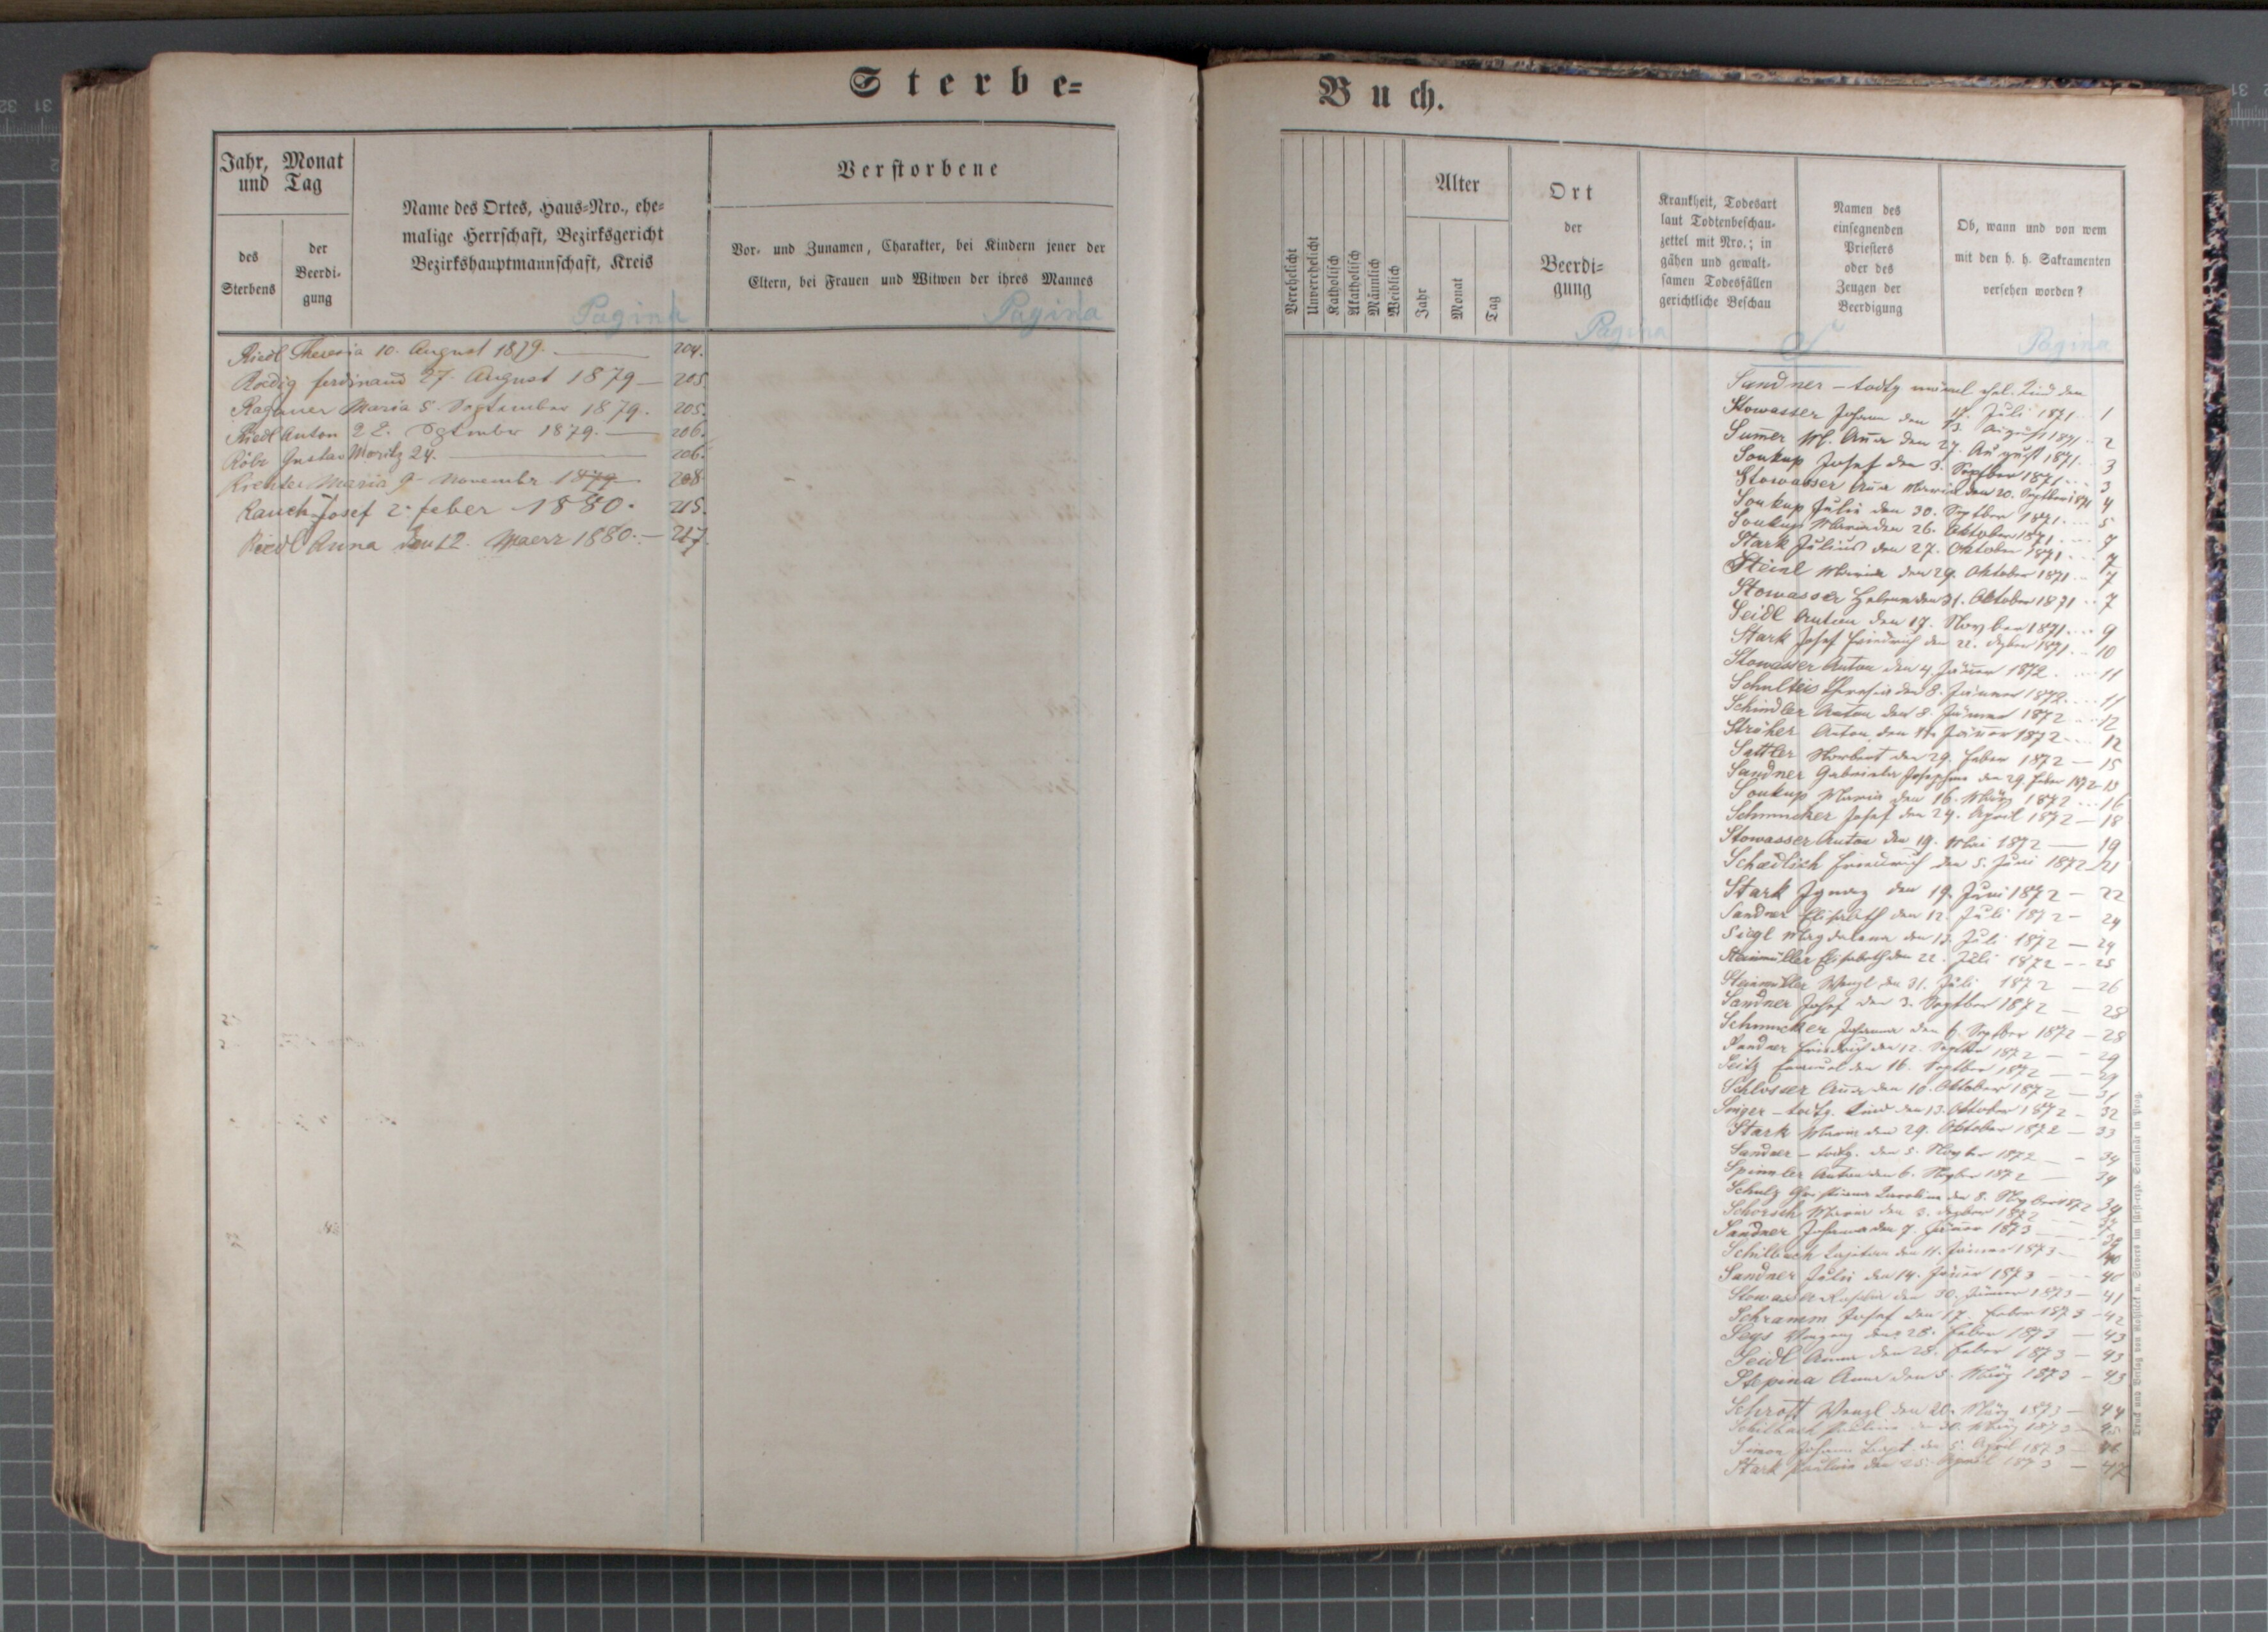 Sterbe=
Jahr, Monat
und Tag
des
Sterbens
der
Beerdi-
gung
Name des Ortes, Haus=Nro., ehe=
malige Herrschaft, Bezirksgericht
Bezirkshauptmannschaft, Kreis
Pagina
Verstorbene
Vor- und Zunamen, Charakter, bei Kindern jener der
Eltern, bei Frauen und Witwen der ihres Mannes
Pagina
Riedl Theresia 10. August 1879. 204.
Rödig ferdinand 27. August 1879 — 205
Maria 5 September 1879. 205.
Riedl Anton 22. 1879. — 206.
Gustav Moritz 24. — 206.
Maria 9 November 1879 208
Rauch Josef 2. feber 1880. 215.
Riedl Anna den 12. Maerz 1880. — 217.
Buch.
Verehelicht
Unverehelicht
Katholisch
Akatholisch
Männlich
Weiblich
Alter
Jahr
Monat
Tag
Ort
der
Beerdi=
gung
Pagina
Krankheit, Todesart
laut Todtenbeschau-
zettel mit Nro.; in
gähen und gewalt-
samen Todesfällen
gerichtliche Beschau
Namen des
einsegnenden
Priesters
oder des
Zeugen der
Beerdigung
S
Ob, wann und von wem
mit den h. h. Sakramenten
versehen worden?
Pagina
Sandner – todtg
Juli 1871 1
Stowasser Johann den 13. August 1871 2
Anna den 27. August 1871 3
Soukup Josef den 3. Septber 1871 3
Stowasser Anna Maria den 20. Septber 1871 4
Soukup Julie den 30. Septber 1871 5
Soukup Maria den 26. Oktober 1871 7
Stark Julius den 27. Oktober 1871 7
Steinl Maria den 29. Oktober 1871 7
Stowasser den 31. Oktober 1871 7
Seidl Anton den 17. Novber 1871 9
Stark Josef Friedrich den 22. Dezber 1871 10
Stowasser Anton den 4. Jänner 1872 11
Schulteis Theresia den 8. Jänner 1872 11
Schindler Anton den 8. Jänner 1872 12
Ströher Anton den Jänner 1872 12
Sattler Norbert den 29. Feber 1872 — 15
Sandner Gabriela Josephine den 29. Feber 1872 – 15
Soukup Maria den 16. März 1872 16
Schmucker Josef den 24. April 1872 — 18
Stowasser Anton den 19. Mai 1872 — 19
Schædlich Friedrich den 5. Juni 1872 21
Stark Ignaz den 19. Juni 1872 — 22
Sandner Elisabeth den 12. Juli 1872 – 24
Siegl Magdalena den 13. Juli 1872 — 24
Steinmüller Elisabeth den 22. Juli 1872 – 25
Steinmüller Wenzl den 31. Juli 1872 — 26
Sandner Josef den 3. Septber 1872 — 28
Schmucker Johanna den 6. Septber 1872 – 28
Sandner Friedrich den 12. Septber 1872 – 29
Seitz Emanuel den 16. Septber 1872 — 29
Schlosser Anna den 10. Oktober 1872 — 31
– todtg. Kind den 13. Oktober 1872 – 32
Stark Maria den 29. Oktober 1872 — 33
Sandner – todtg. den 5. Novber 1872 – 34
Spinnler Anton den 6. Novber 1872 — 34
Schulz Christiana Karolina den 8. Novber 1872 34
Schorsch Maria den 3. Dezber 1872 37
Sandner Johanna den 7. Jänner 1873 39
Schilbach den 11. Jänner 1873 – 40
Sandner Julie den 14. Jänner 1873 – 40
Stowasser den 30. Jänner 1873 – 41
Schramm Josef den 17. Feber 1873 – 42
den 28. Feber 1873 — 43
Seidl Anna den 28. Feber 1873 – 43
Stepina Anna den 5. März 1873 – 43
Schrott Wenzl den 20. März 1873 — 44
Schilbach den 30. März 1873 – 45
Simon Johann Bapt. den 5. April 1873 –
Stark den 25. April 1873 — 47
Druck und Verlag von u. Sievers im fürst-erzb. Seminär in Prag.